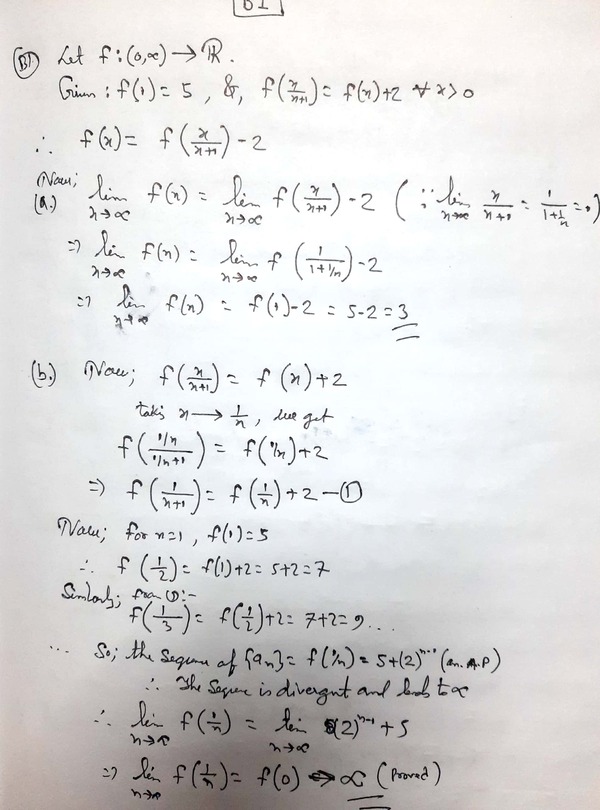 B1
(B1) Let f : (0,∞) → ℝ.
Given : f(1) = 5 , &, f(x/x+1) = f(x)+2 ∀ x>0
∴ f(x) = f(x/x+1) - 2
Now;
(a.) lim x→∞ f(x) = lim x→∞ f(x/x+1) - 2 ( ∵ lim x→∞ x/x+1 = 1/1+1/x = 1)
⇒ lim x→∞ f(x) = lim x→∞ f(1/1+1/x) - 2
⇒ lim x→∞ f(x) = f(1)-2 = 5-2 = 3
(b.) Now; f(x/x+1) = f(x)+2
taking x → 1/x, we get
f(1/x/1/x+1) = f(1/x)+2
⇒ f(1/x+1) = f(1/x)+2 — ①
Now; for x=1, f(1)=5
∴ f(1/2) = f(1)+2 = 5+2 = 7
Similarly; from ①:-
f(1/3) = f(1/2)+2 = 7+2 = 9...
... So; the sequence of {an} = f(1/n) = 5+(2)^n-1 (an. A.P)
∴ The sequence is divergent and leads to ∞
∴ lim n→∞ f(1/n) = lim n→∞ (2)^n-1 + 5
⇒ lim n→∞ f(1/n) = f(0) → ∞ (Proved)